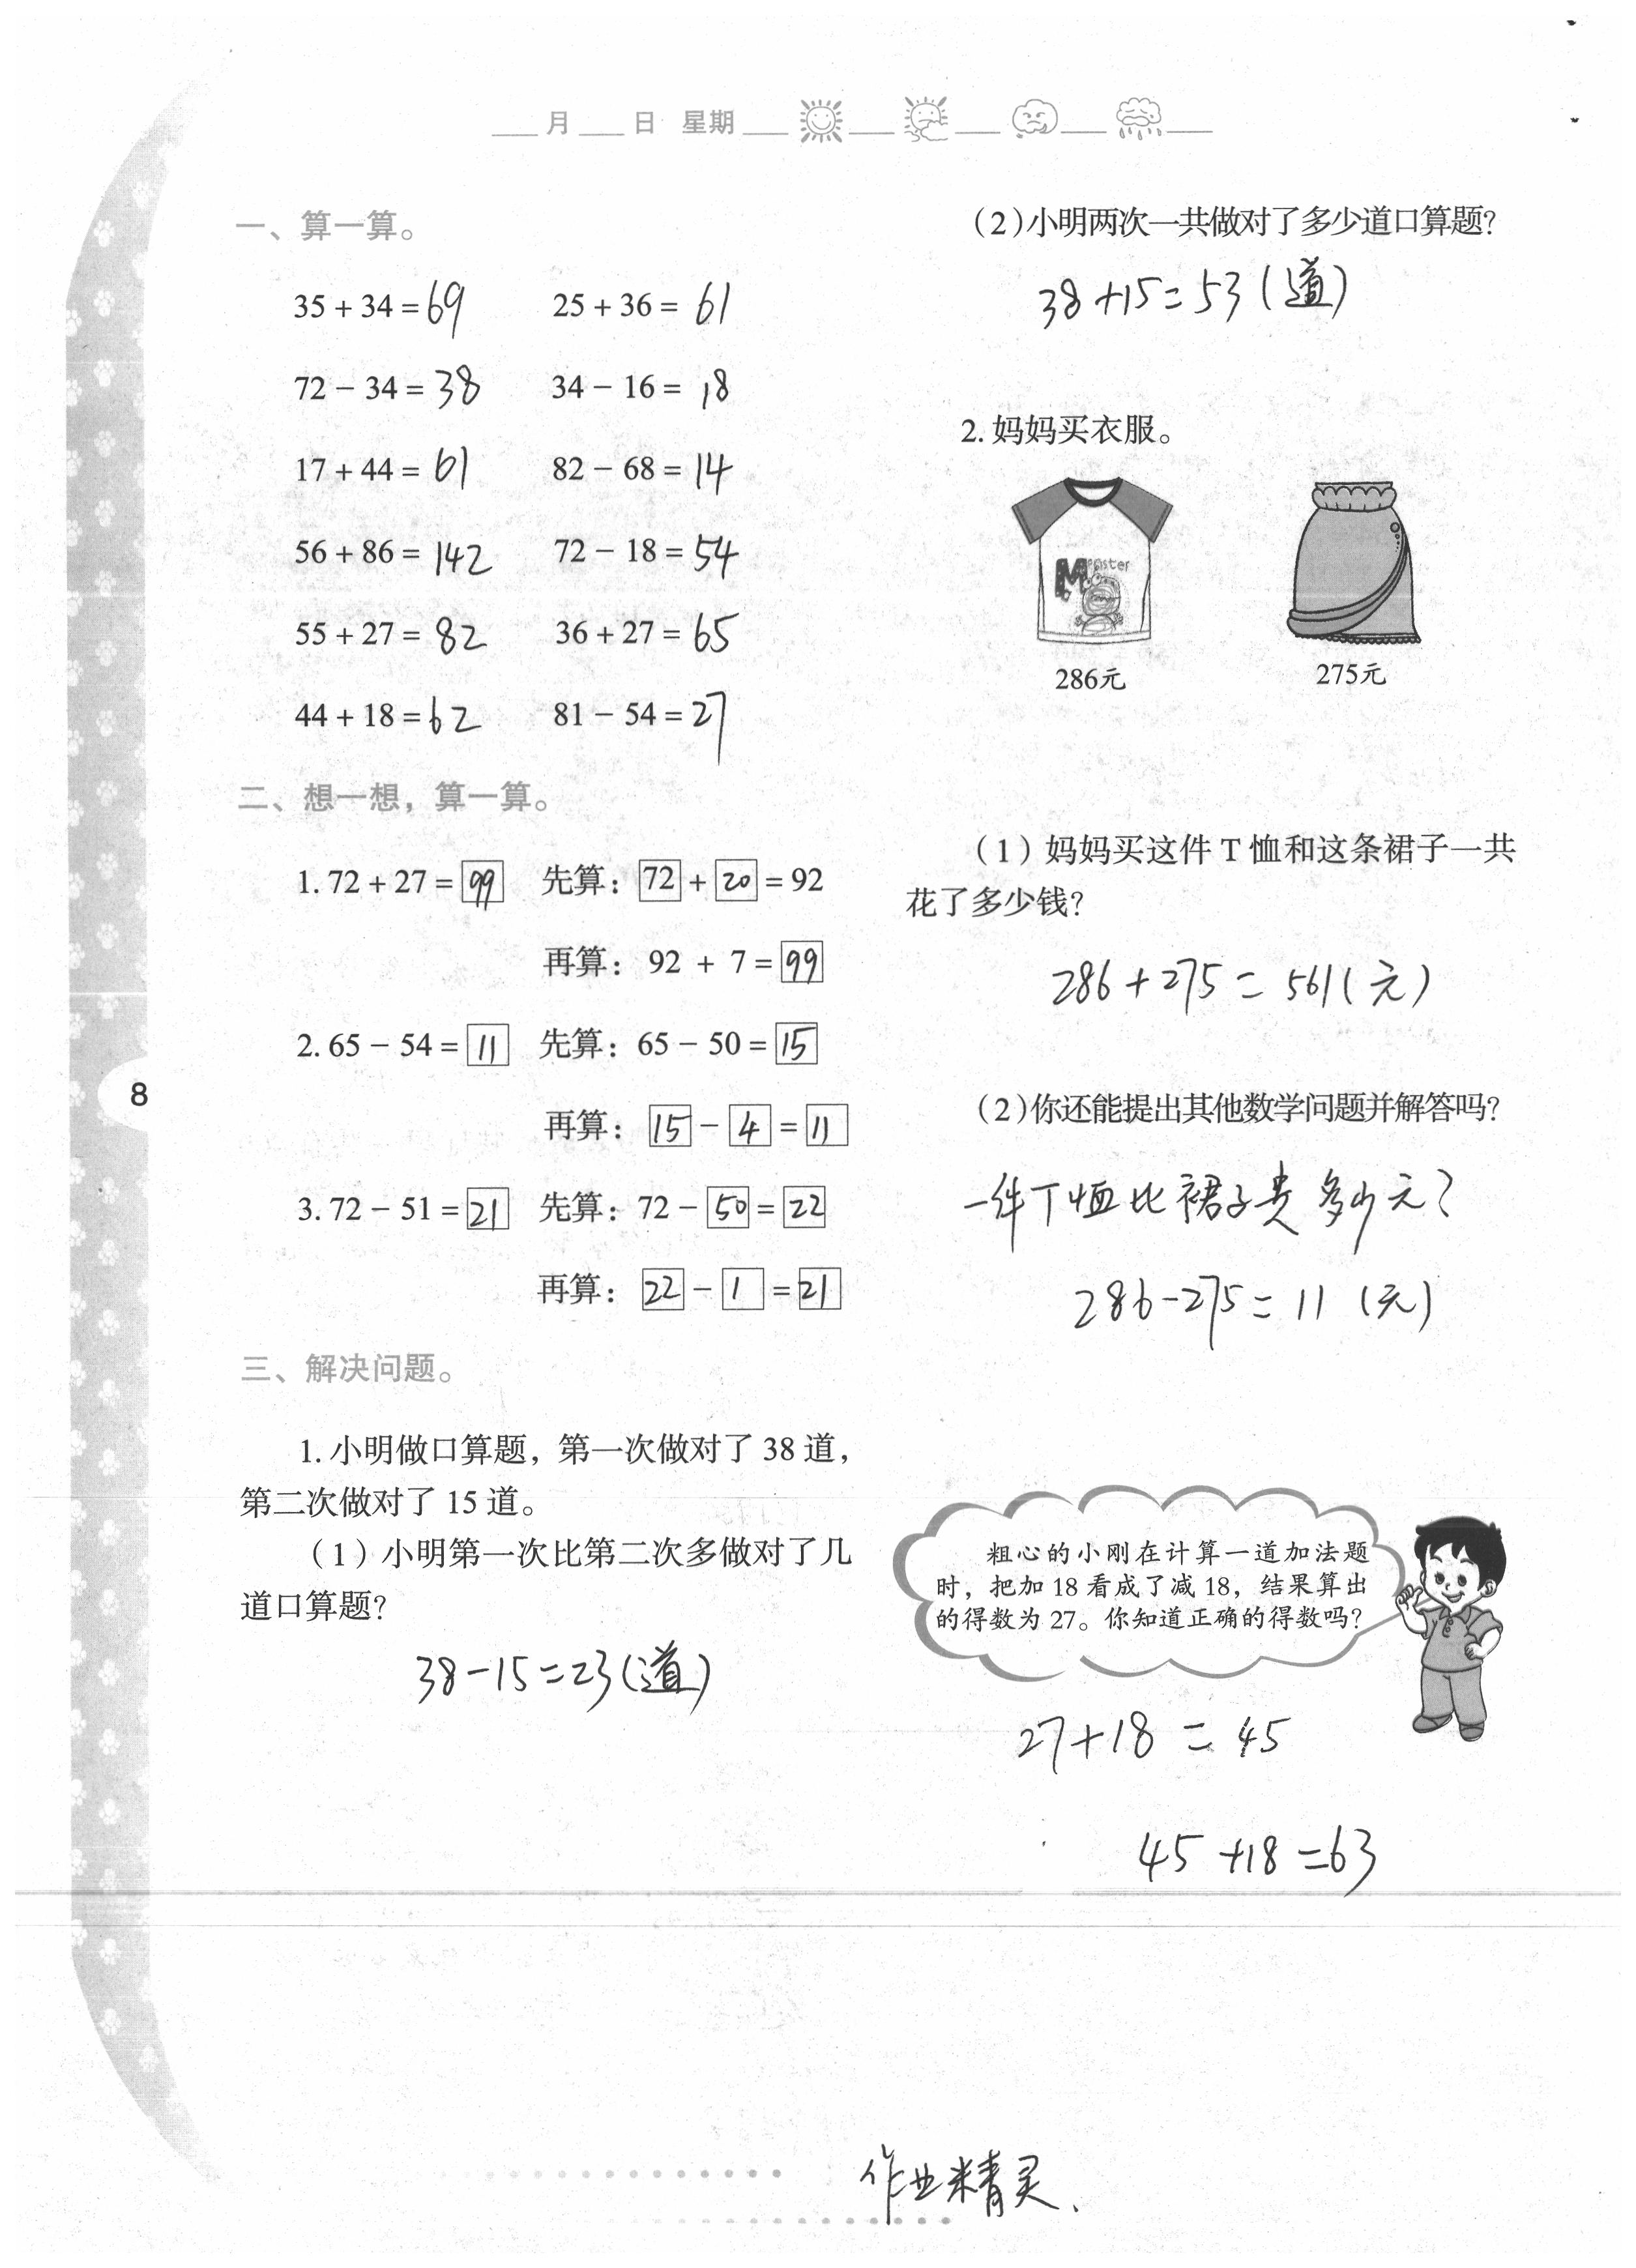 月 日 星期
一、算一算。
35 + 34 = 69 25 + 36 = 61
72 - 34 = 38 34 - 16 = 18
17 + 44 = 61 82 - 68 = 14
56 + 86 = 142 72 - 18 = 54
55 + 27 = 82 36 + 27 = 65
44 + 18 = 62 81 - 54 = 27
二、想一想，算一算。
1. 72 + 27 = 99 先算：72 + 20 = 92
再算：92 + 7 = 99
2. 65 - 54 = 11 先算：65 - 50 = 15
再算：15 - 4 = 11
3. 72 - 51 = 21 先算：72 - 50 = 22
再算：22 - 1 = 21
三、解决问题。
1. 小明做口算题，第一次做对了 38 道，
第二次做对了 15 道。
（1）小明第一次比第二次多做对了几
道口算题？
38-15=23（道）
8
（2）小明两次一共做对了多少道口算题？
38+15=53（道）
2. 妈妈买衣服。
Monster
286元 275元
（1）妈妈买这件 T 恤和这条裙子一共
花了多少钱？
286+275=561（元）
（2）你还能提出其他数学问题并解答吗？
一件T恤比裙子贵多少元？
286-275=11（元）
粗心的小刚在计算一道加法题
时，把加 18 看成了减 18，结果算出
的得数为 27。你知道正确的得数吗？
27+18=45
45+18=63
作业精灵、